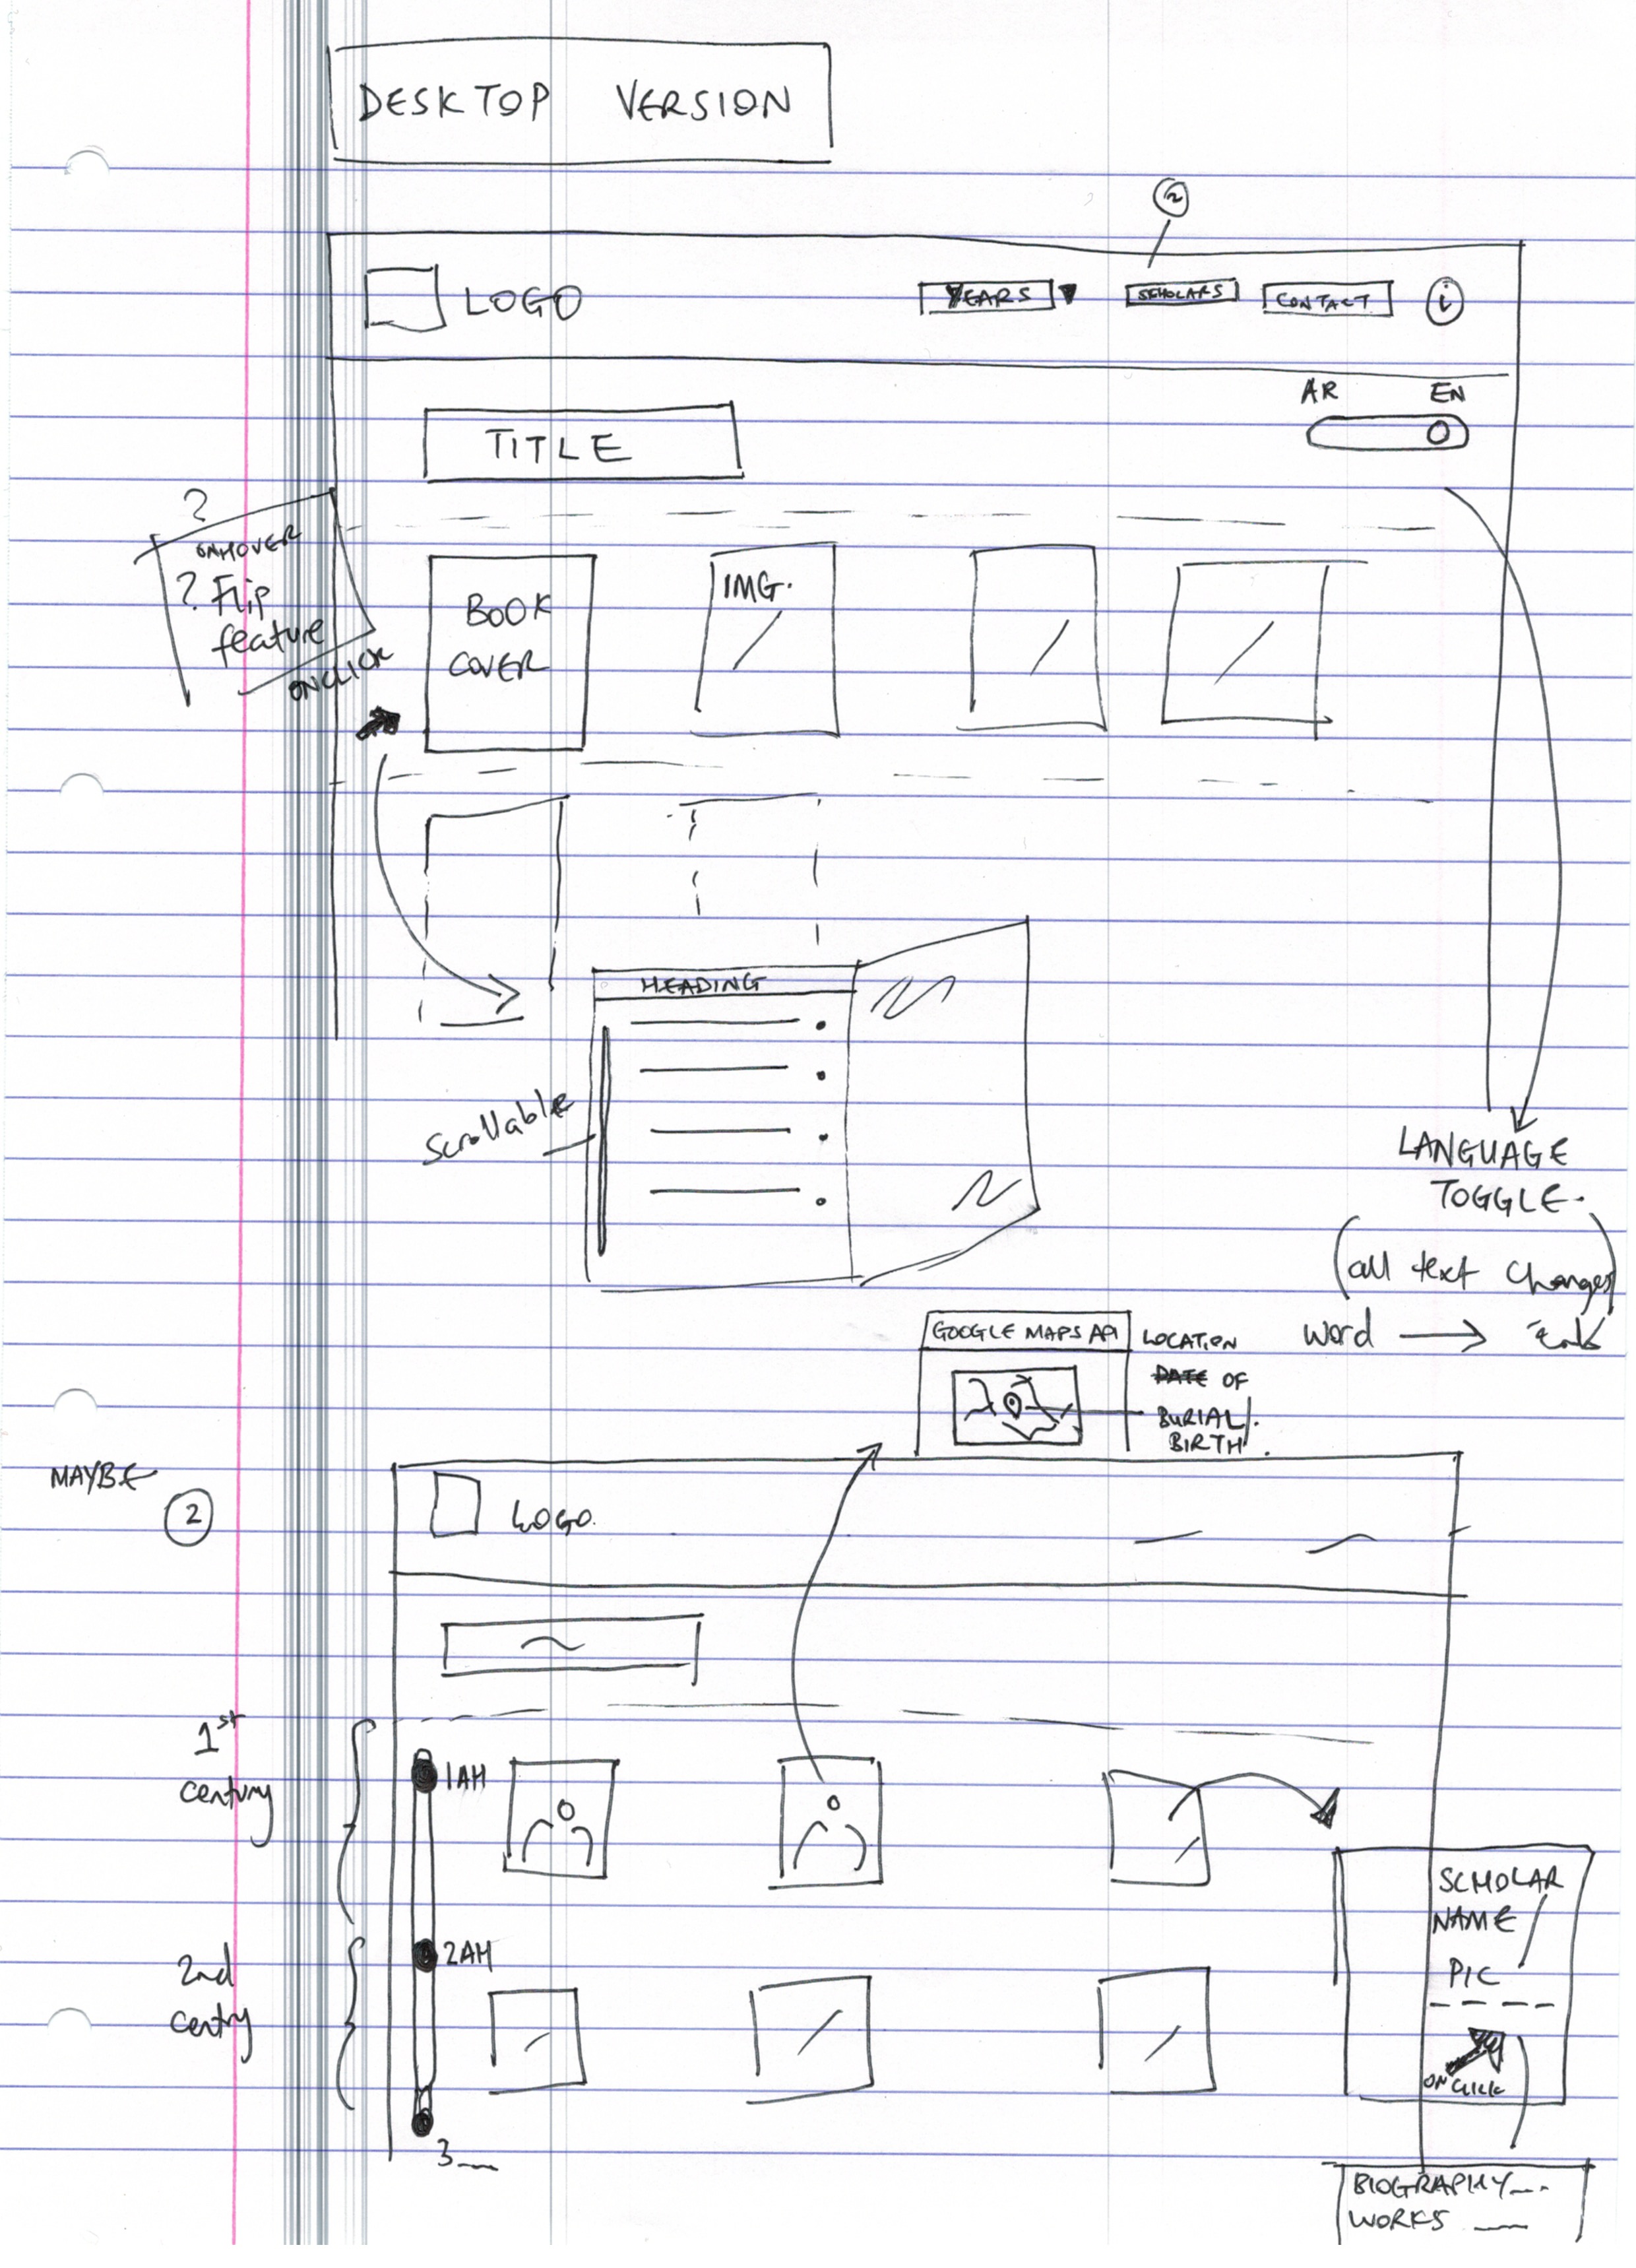 DESKTOP VERSION
2
LOGO
YEARS
SCHOLARS
CONTACT
i
AR EN
TITLE
?
ONHOVER
? Flip
feature
ONCLICK
BOOK
COVER
IMG.
HEADING
Scrollable
LANGUAGE
TOGGLE.
(all text changes)
word →
GOOGLE MAPS API
LOCATION
DATE OF
BURIAL/.
BIRTH.
MAYBE
2
LOGO.
1st
century
1AH
2nd
centry
2AH
3
SCHOLAR
NAME/
PIC
ONCLICK
BIOGRAPHY...
WORKS